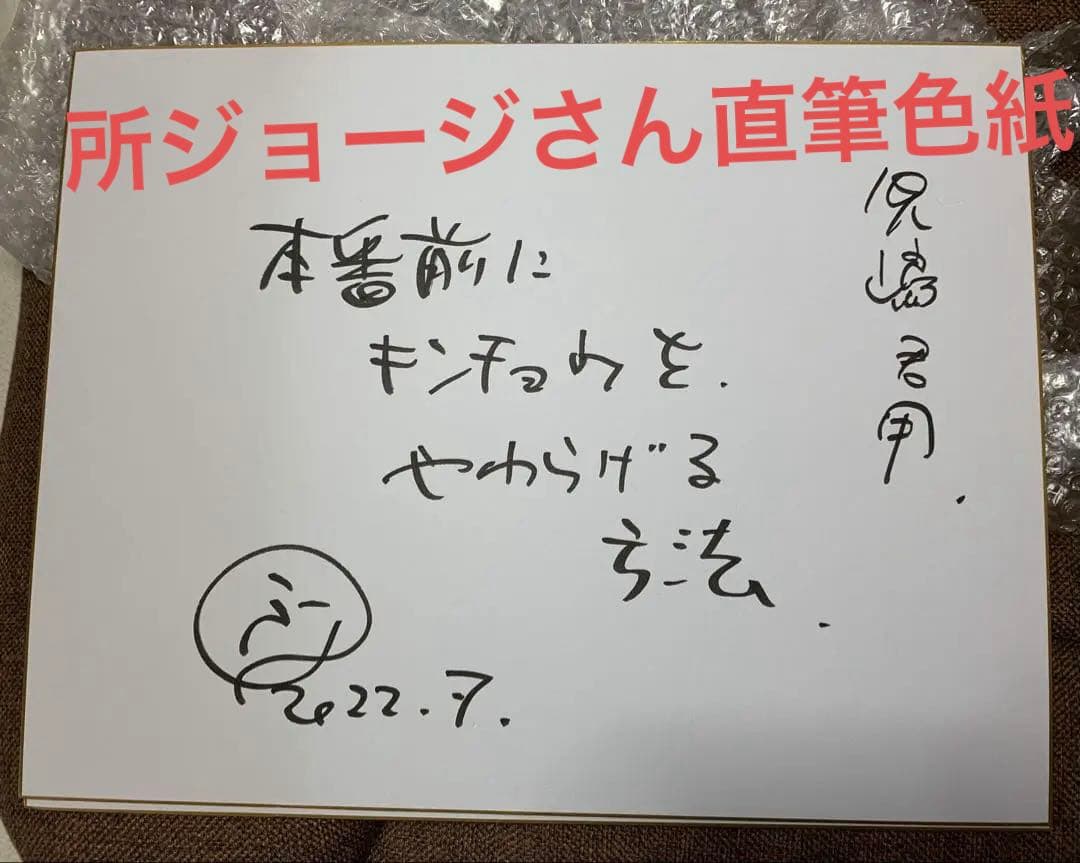 所ジョージさん直筆色紙
児嶋君用.
本番前に
キンチョウを.
やわらげる
方法.
2022.7.